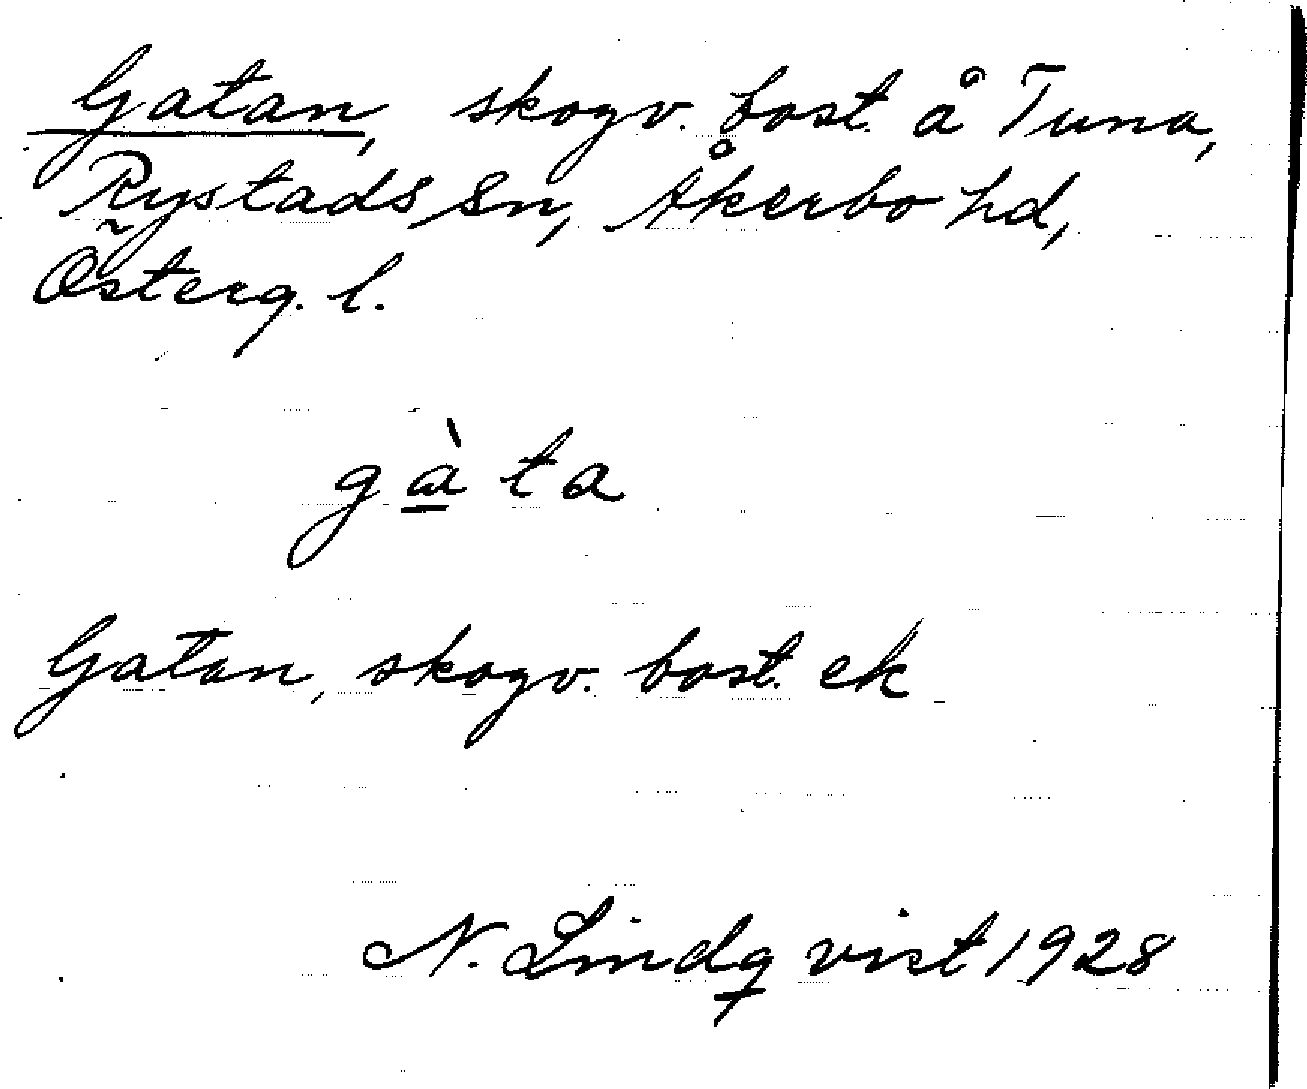 Gatan, skogv. bost. å Tuna,
Rystads sn, Åkerbo hd,
Österg. l.
gàta
Gatan, skogv. bost. ek
N. Lindqvist 1928